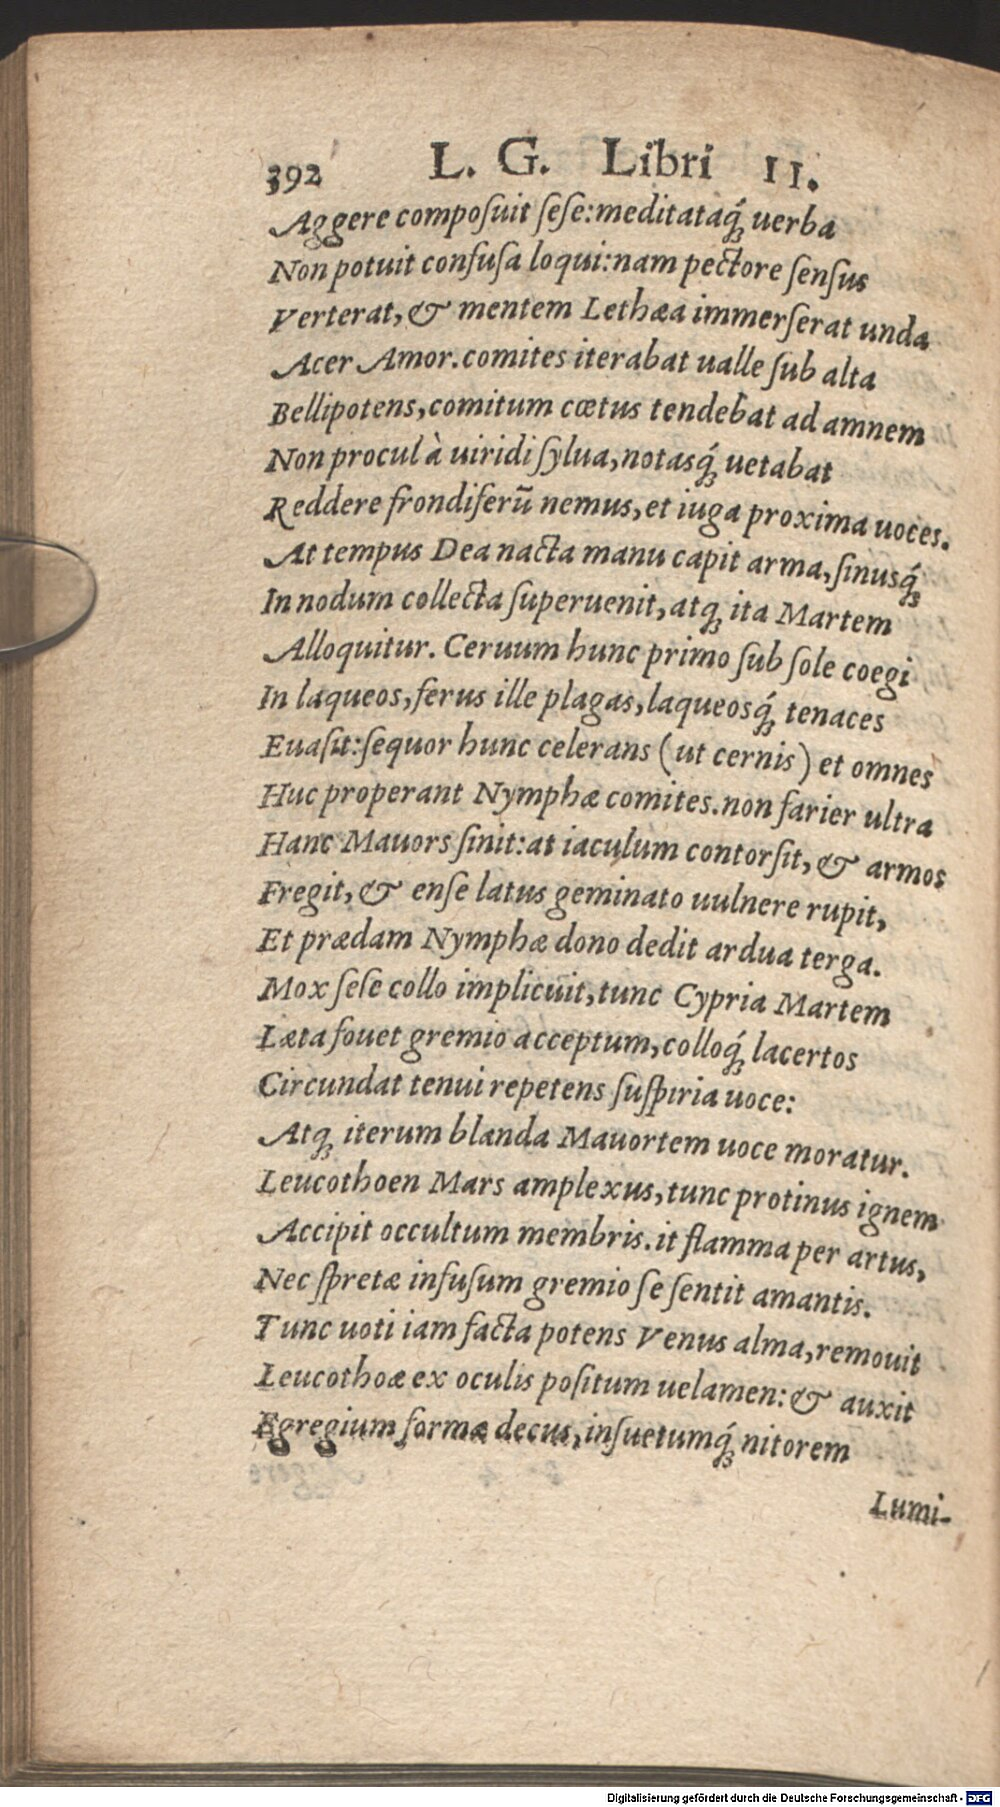 392 L. G. Libri II.
Aggere compoſuit ſeſe: meditataq́; uerba
Non potuit confuſa loqui: nam pectore ſenſus
Verterat, & mentem Lethæa immerſerat unda
Acer Amor. comites iterabat ualle ſub alta
Bellipotens, comitum cœtus tendebat ad amnem
Non procul à uiridi ſylua, notasq́; uetabat
Reddere frondiferũ nemus, et iuga proxima uoces.
At tempus Dea nacta manu capit arma, ſinusq́;
In nodum collecta ſuperuenit, atq; ita Martem
Alloquitur. Ceruum hunc primo ſub ſole coegi
In laqueos, ferus ille plagas, laqueosq́; tenaces
Euaſit: ſequor hunc celerans (ut cernis) et omnes
Huc properant Nymphæ comites. non farier ultra
Hanc Mauors ſinit: at iaculum contorſit, & armos
Fregit, & enſe latus geminato uulnere rupit,
Et prædam Nymphæ dono dedit ardua terga.
Mox ſeſe collo implicuit, tunc Cypria Martem
Læta fouet gremio acceptum, colloq́; lacertos
Circundat tenui repetens ſuſpiria uoce:
Atq; iterum blanda Mauortem uoce moratur.
Leucothoen Mars amplexus, tunc protinus ignem
Accipit occultum membris. it flamma per artus,
Nec ſpretæ infuſum gremio ſe ſentit amantis.
Tunc uoti iam facta potens Venus alma, remouit
Leucothoæ ex oculis poſitum uelamen: & auxit
Egregium formæ decus, inſuetumq́; nitorem
Lumi-
Digitalisierung gefördert durch die Deutsche Forschungsgemeinschaft - DFG